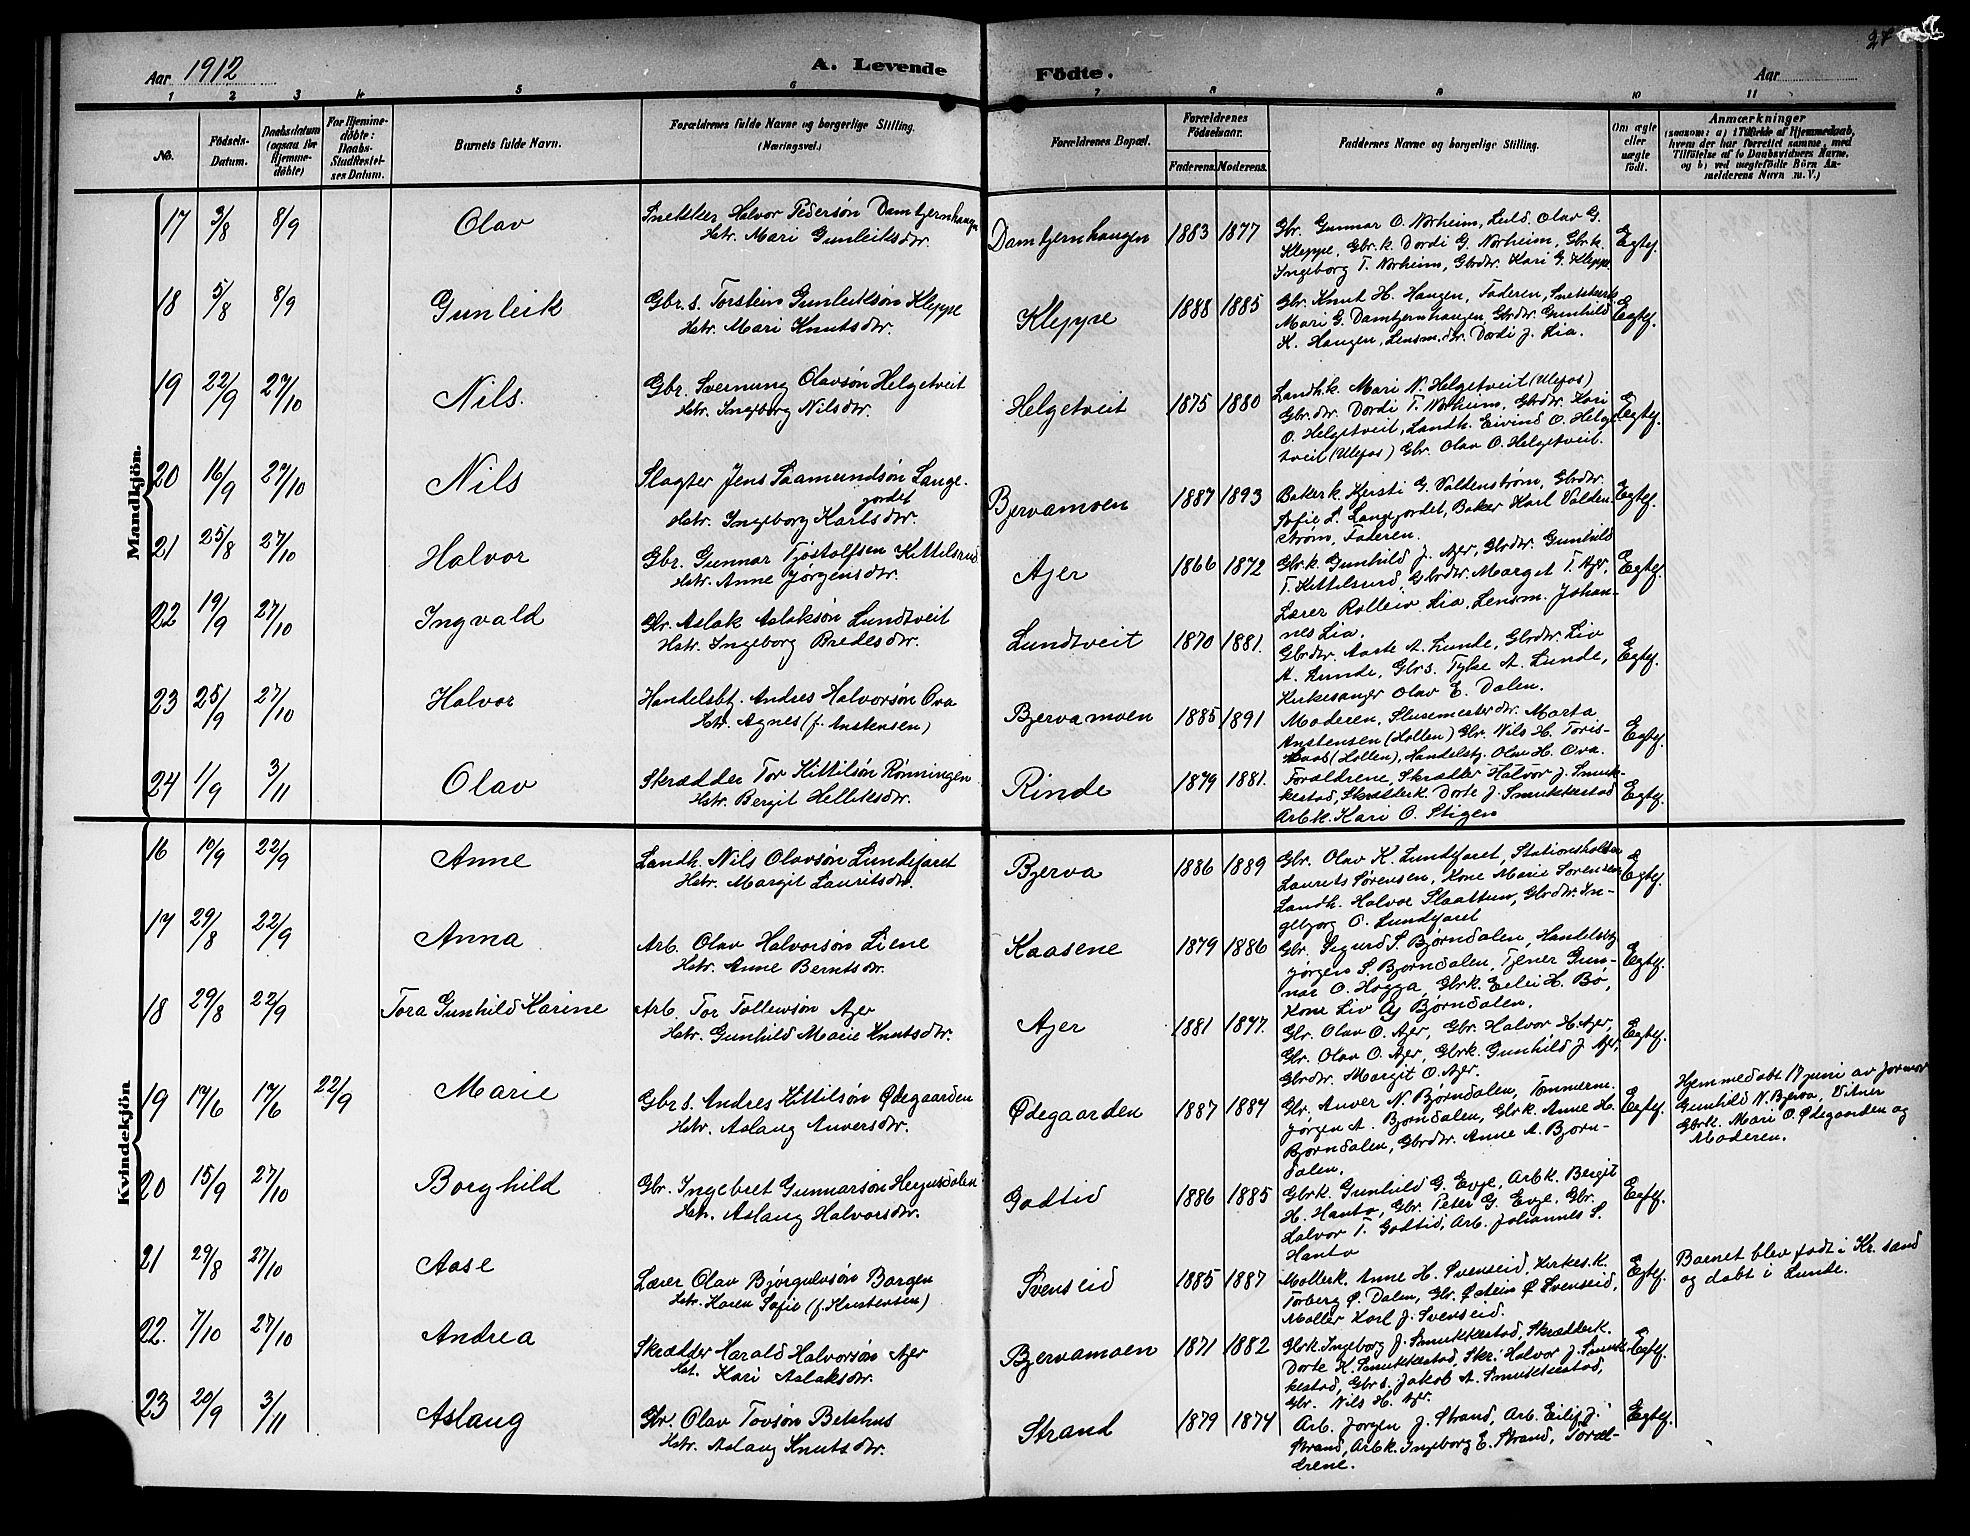 Aar 1912
A. Levende
Födte.
Aar
27
1 2 3 4 5 6 7 8 9 10 11
No.
Födsels-Datum.
Daabsdatum (ogsaa for Hjemme-döbte)
For Hjemme-döbte: Daabs-Stadfæstel-ses Datum.
Barnets fulde Navn.
Forældrenes fulde Navne og borgerlige Stilling. (Næringsvei.)
Forældrenes Bopæl.
Forældrenes Födselsaar.
Faderens. Moderens.
Faddernes Navne og borgerlige Stilling.
Om ægte eller uægte födt.
Anmærkninger
(saasom: a) i Tilfælde af Hjemmedaab,
hvem der har forrettet samme, med
Tilföielse af to Daabsvidners Navne.
og b) ved uægtefödte Börn An-
melderens Navn m. V.)
Mandkjön.
17 3/8 8/9 Olav
Snekker Halvor Pedersön Damtjernhaugen
Hstr. Mari Gunleiksdtr.
Damtjernhaugen 1883 1877
Gbr. Gunnar O. Norheim, Leil. Olav G.
Kleppe, Gbr.k. Dordi G. Norheim, Gbr.k.
Ingeborg T. Norheim, Gbrdtr. Kari G. Kleppe
Egtef.
18 5/8 8/9 Gunleik
Gbr.s. Torstein Gunleiksön Kleppe
Hstr. Mari Knutsdtr.
Kleppe 1888 1885
Gbr. Knut H. Haugen, Faderen, Snekkerk.
Mari G. Damtjernhaugen Gbrdtr. Gunhild
K. Haugen, Lensm.dtr. Dordi J. Lia.
Egtef.
19 22/9 27/10 Nils.
Gbr. Svernung Olavsön Helgetveit
Hstr. Ingeborg Nilsdtr.
Helgetveit 1875 1880
Landh.k. Mari N. Helgetveit (Ulefos)
Gbr.dtr. Dordi T. Norheim, Gbrdtr. Kari
O. Helgetveit, Landh. Eivind O. Helge-
tveit (Ulefos) Gbr. Olav O. Helgetveit.
Egtef.
20 16/9 27/10 Nils
Slagter Jens Saamundsön Lange-
jordet
Hstr. Ingeborg Karlsdtr.
Bjervamoen 1887 1893
Bakerk. Kjersti G. Valdenström, Gbrdtr.
Sofie L. Langejordet, Baker Karl Valden-
ström, Faderen.
Egtef.
21 25/8 27/10 Halvor
Gbr. Gunnar Tjöstolfsen Kittilsrud
Hstr. Anne Jörgensdtr.
Ajer 1866 1872
Gbr.k. Gunhild J. Ajer, Gbrdtr. Gunhild
T. Kittilsrud, Gbrdtr. Marget T. Ajer,
Lærer Rolleiv Lia, Lensm. Johan-
nes Lia.
Egtef.
22 19/9 27/10 Ingvald
Gbr. Aslak Aslaksön Lundtveit
Hstr. Ingeborg Bredesdtr.
Lundtveit 1870 1881.
Gbrdtr. Aaste A. Lunde, Gbrdtr. Liv
A. Lunde, Gbrs. Tylse A. Lunde,
Kirkesanger Olav E. Dalen.
Egtef.
23 25/9 27/10 Halvor
Handelsbt. Andres Halvorsön Ova
Hstr. Agnes (f. Anstensen)
Bjervamoen 1885 1891
Moderen, Slusemester dtr. Marta
Anstensen (Hollen) Gbr. Nils H. Toris-
haas (Hollen), Handelsbtj. Olav H. Ova.
Egtef.
24 1/9 3/11 Olav
Skrædder Tor Kittilsön Rönningen
Hstr. Bergit Helliksdtr.
Rinde 1879 1881.
Forældrene, Skrædder Halvor J. Smuk-
kestad, Skrædderk. Dorte J. Smukkestad
Arb.k. Kari O. Stigen
Egtef.
Kvindekjön
16 10/9 22/9 Anne
Landh. Nils Olavsön Lundefaret
Hstr. Margit Lauritsdtr.
Bjerva 1886 1889
Gbr. Olav K. Lundefaret, Stationsholder
Laurets Sörensen, Kone Marie Sorensen
Landh. Halvor Slaattun, Gbrdtr. In-
gebjorg O. Lundefaret
Egtef.
17 29/8 22/9 Anna
Arb. Olav Halvorsön Liene
Hstr. Anne Berntsdtr.
Kaasene 1879 1886
Gbr. Sigurd S. Björndalen, Handelsbtj.
Jörgen S. Björndalen, Tjener Gun-
nar O. Hogga, Gbrk. Eilei H. Bö,
Kone Liv Aj Björndalen.
Egtef.
18 29/8 22/9 Tora Gunhild Karine
Arb. Tor Tollevsön Ajer
Hstr. Gunhild Marie Knutsdtr.
Ajer 1881 1877.
Gbr. Olav O. Ajer, Gbr. Halvor H. Ajer,
Gbr. Olav O. Ajer, Gbrk. Gunhild J. Ajer,
Gbrdtr. Margit O. Ajer.
Egtef.
19 17/6 17/6 22/9 Marie
Gbrs. Andres Kittilsön Ødegaarden
Hstr. Aslaug Anversdtr.
Ødegaarden 1887 1887
Gbr. Anver N. Björndalen, Tommerm.
Jörgen A. Björndalen, Gbrk. Anne H.
Björndalen, Gbrdtr. Anne A. Bjorn-
dalen.
Egtef.
Hjemmedöbt 17 juni av jormor
Gunhild N. Bjerva, Vitner
Gbrk. Mari O. Ødegaarden og
Moderen.
20 15/9 27/10 Borghild
Gbr. Ingebret Gunnarsön Hegnadalen
Hstr. Aslaug Halvorsdtr.
Godtid 1886 1885
Gbrk. Gunhild G. Evje, Arbk. Bergit
H. Hanto, Gbr. Peter G. Evje, Gbr.
Halvor T. Godtid, Arb. Johannes S.
Hanto
Egtef.
21 29/8 27/10 Aase
Lærer Olav Björgulvsön Borgen
Hstr. Karen Sofie (f. Kristensen)
Svenseid 1885 1887
Mollerk. Anne H. Svenseid, Kirkes.k.
Torberg Ø. Dalen, Gbr. Östein Ø. Svenseid,
Moller Karl J. Svenseid.
Egtef.
Barnet blev födt i Kr. sand
og döbt i Lunde.
22. 7/10 27/10 Andrea
Skrædder Harald Halvorsön Ajer
Hst. Kari Aslaksdtr.
Bjervamoen 1871 1882
Gbrk. Ingeborg J. Smukkestad, Skrædderk.
Dorte K. Smukkestad, Skr. Halvor J. Smuk-
kestad, Gbrs. Jakob A. Smukkestad,
Gbr. Nils H. Ajer.
Egtef.
23 20/9 3/11 Aslaug
Gbr. Olav Tovsön Betshus
Hstr. Aslaug Knutsdtr.
Strand 1879 1874
Arb. Jorgen J. Strand, Arb. Eilif J.
Strand, Arbk. Ingeborg E. Strand, Foræl-
drene.
Egtef.